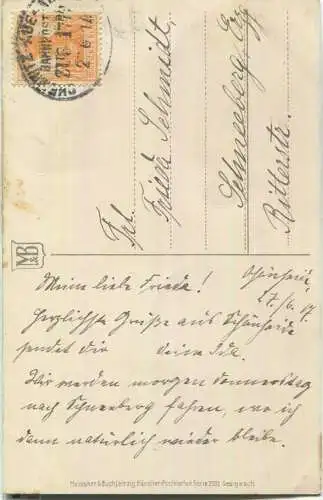 CHEMNITZ-ADORF
BAHNPOST
ZUG
2 6 17
Frl.
Frieda Schmidt,
Schneeberg Erzg
Ritterstr.
MB
Schönheide,
27./6. 17.
Meine liebe Frieda!
Herzlichste Grüße aus Schönheide
sendet dir deine Ida.
Wir werden morgen Donnerstag
nach Schneeberg fahren, wo ich
dann natürlich wieder bleibe.
Meissner & Buch, Leipzig, Künstler-Postkarten Serie